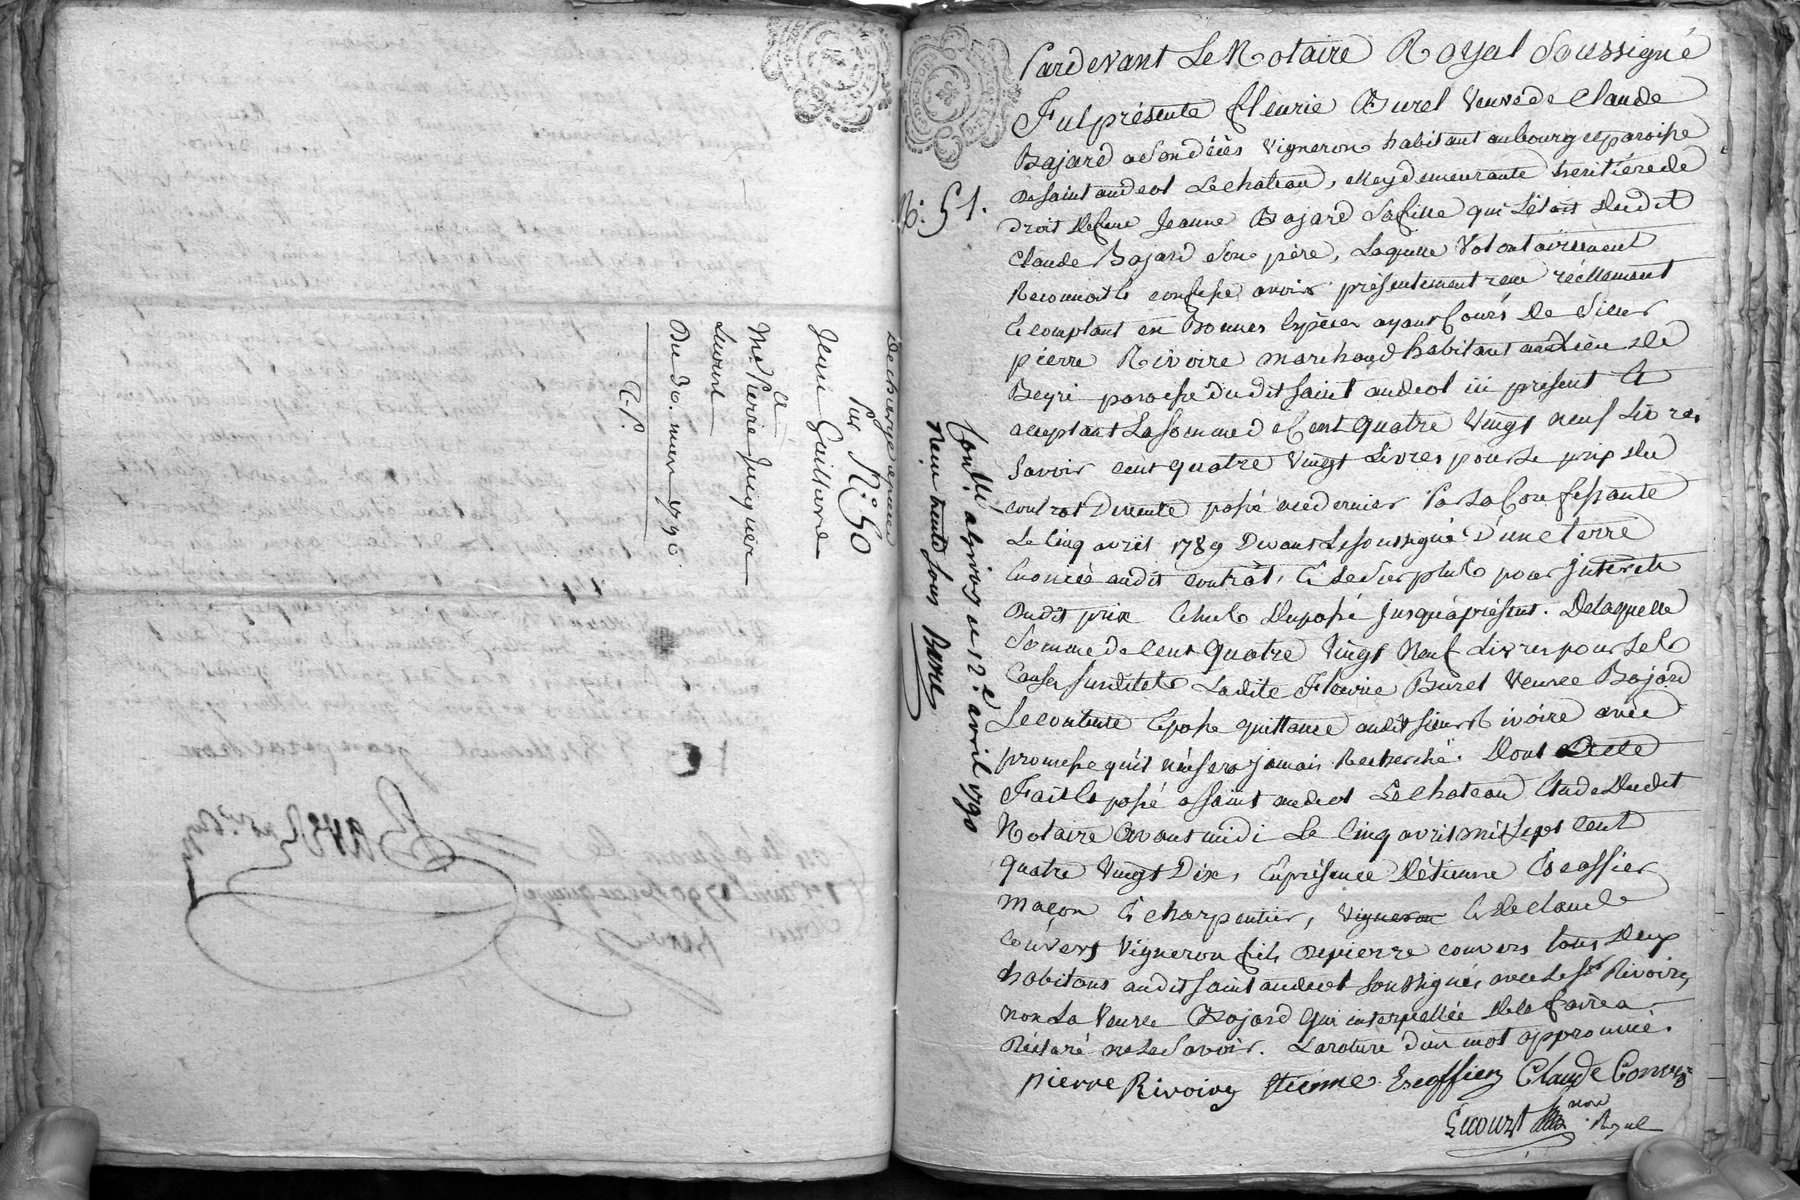 Decharge epicuu
Sur N.° 50
Jean Gaillard
a
M.e Pierre Juequier
Lecourt
Du 30. mars 1790.
R. P.
N.° 51.
Contllé a Givors ce 12.e avril 1790
Recu trente sous Barre
Pardevant Le Notaire Royal Soussigné
Fut présente fleurie Burel veuve de Claude
Bajard a son décès Vigneron habitant au bourg et paroisse
de saint andeol Le chateau, elle y demeurante héritiere de
droit de feue Jeanne Bajard Sa fille qui L'était dudit
Claude Bajard son père, Laquelle Volontairement
Reconnoit & confesse avoir présentement reçu réellement
& comptant en Bonnes Espèces ayant Cours de Sieur
pierre Rivoire marchand habitant au Lieu de
Beyri paroisse du dit saint andeol ici présent &
acceptant La somme de Cent quatre Vingt neuf Livres
Savoir cent quatre Vingt Livres pour Le prix du
contrat de vente passé au dernier Par La Confessante
Le Cinq avril 1789 Devant Le soussigné D'une terre
Enoncée audit contrat, & Le Surplus pour Interets
dudit prix Echus Depassé Jusqu'à présent. De laquelle
Somme de Cent quatre Vingt Neuf Livres pour Les
Causes susdites Ladite Fleurie Burel Veuve Bajard
Se contente & passe quittance audit sieur Rivoire avec
promesse qu'il n'en sera jamais Recherché. Dont acte
Fait & passé a saint andeol Le chateau Etude dudit
Notaire avant midi Le Cinq avril mil sept cent
quatre Vingt Dix, En présence d'étienne Escoffier
maçon & charpentier, vigneron & de claude
convers Vigneron fils de pierre convers tous deux
habitans audit saint andeol Soussignés avec Le Sr Rivoire,
non La Veuve Bajard qui interpellée de le faire a
Déclaré ne Le Savoir. La rature d'un mot approuvée.
pierre Rivoire étienne Escoffier Claude Convers
Lecourt nore Royal